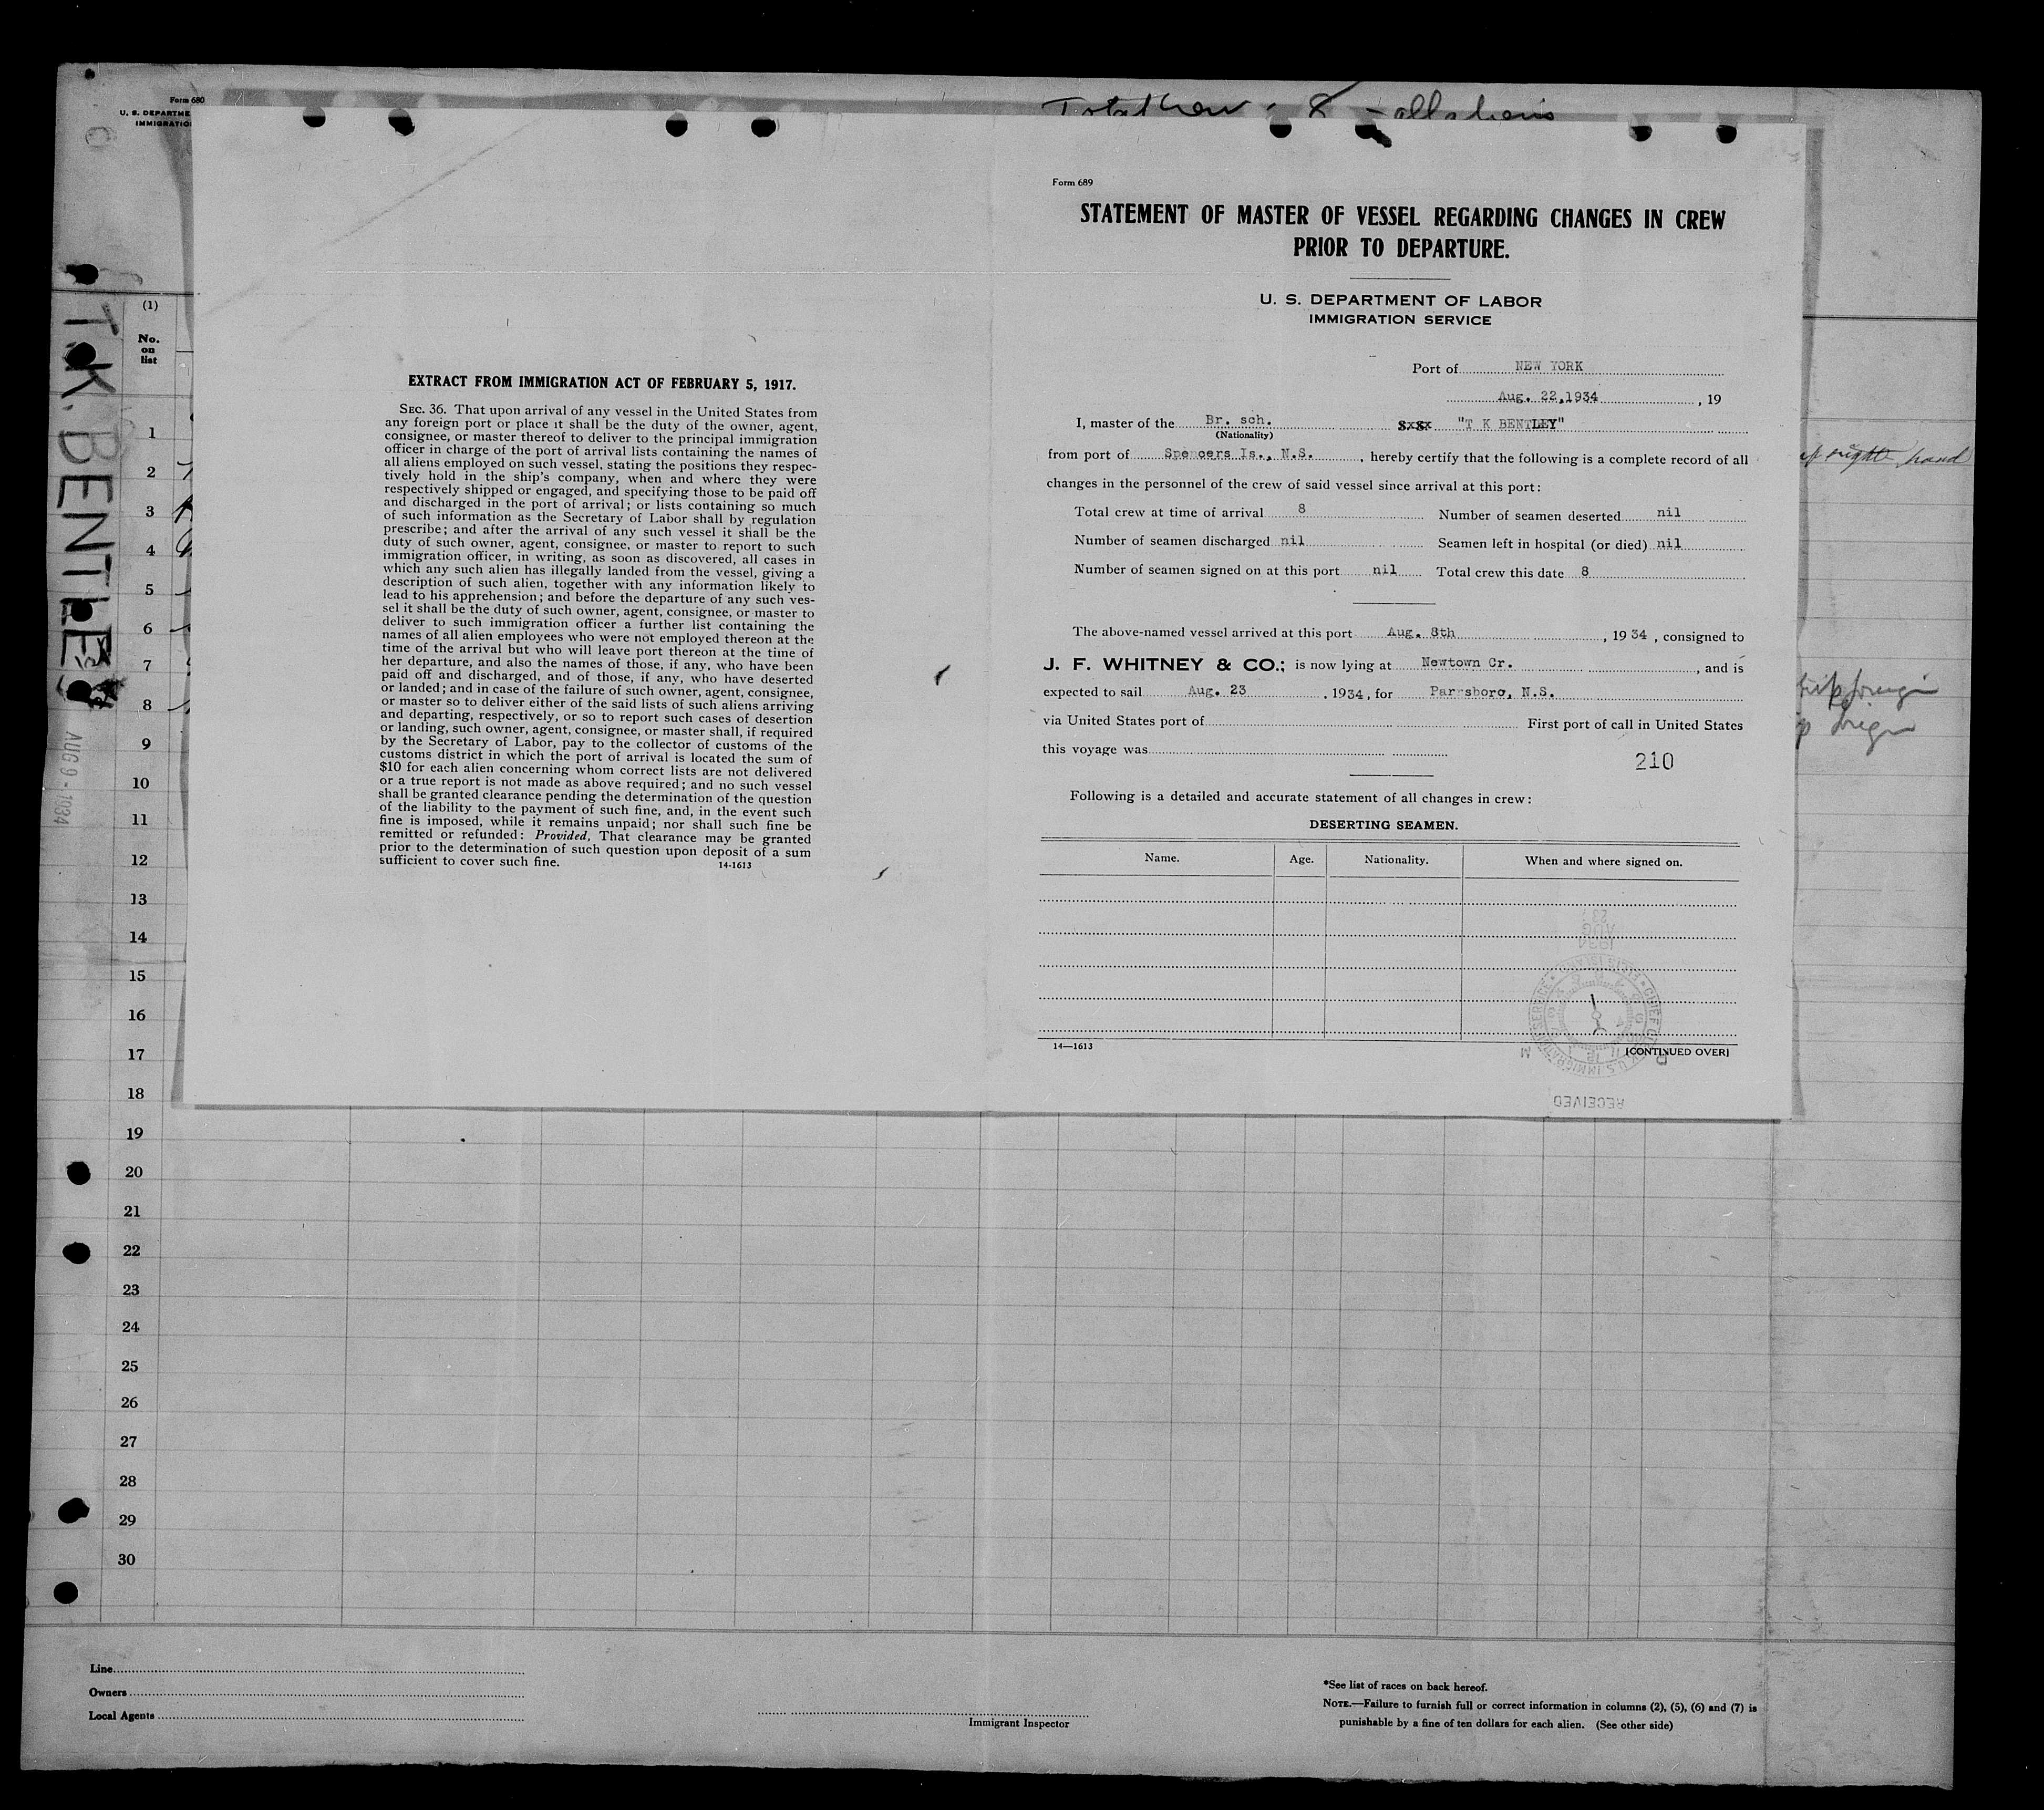 Form 680
U. S. DEPARTME
IMMIGRATIO
Total Crew : 8 - all aliens
T.K. BENTLEY
AUG 9 - 1934
(1)
No.
on
list
1
2
3
4
5
6
7
8
9
10
11
12
13
14
15
16
17
18
19
20
21
22
23
24
25
26
27
28
29
30
EXTRACT FROM IMMIGRATION ACT OF FEBRUARY 5, 1917.
SEC. 36. That upon arrival of any vessel in the United States from
any foreign port or place it shall be the duty of the owner, agent,
consignee, or master thereof to deliver to the principal immigration
officer in charge of the port of arrival lists containing the names of
all aliens employed on such vessel, stating the positions they respec-
tively hold in the ship's company, when and where they were
respectively shipped or engaged, and specifying those to be paid off
and discharged in the port of arrival; or lists containing so much
of such information as the Secretary of Labor shall by regulation
prescribe; and after the arrival of any such vessel it shall be the
duty of such owner, agent, consignee, or master to report to such
immigration officer, in writing, as soon as discovered, all cases in
which any such alien has illegally landed from the vessel, giving a
description of such alien, together with any information likely to
lead to his apprehension; and before the departure of any such ves-
sel it shall be the duty of such owner, agent, consignee, or master to
deliver to such immigration officer a further list containing the
names of all alien employees who were not employed thereon at the
time of the arrival but who will leave port thereon at the time of
her departure, and also the names of those, if any, who have been
paid off and discharged, and of those, if any, who have deserted
or landed; and in case of the failure of such owner, agent, consignee,
or master so to deliver either of the said lists of such aliens arriving
and departing, respectively, or so to report such cases of desertion
or landing, such owner, agent, consignee, or master shall, if required
by the Secretary of Labor, pay to the collector of customs of the
customs district in which the port of arrival is located the sum of
$10 for each alien concerning whom correct lists are not delivered
or a true report is not made as above required; and no such vessel
shall be granted clearance pending the determination of the question
of the liability to the payment of such fine, and, in the event such
fine is imposed, while it remains unpaid; nor shall such fine be
remitted or refunded: Provided, That clearance may be granted
prior to the determination of such question upon deposit of a sum
sufficient to cover such fine. 14-1613
Form 689
STATEMENT OF MASTER OF VESSEL REGARDING CHANGES IN CREW
PRIOR TO DEPARTURE.
U. S. DEPARTMENT OF LABOR
IMMIGRATION SERVICE
Port of NEW YORK
Aug. 22,1934, 19
I, master of the Br. sch. "T K BENTLEY"
(Nationality)
from port of Spencers Is., N.S., hereby certify that the following is a complete record of all
changes in the personnel of the crew of said vessel since arrival at this port:
Total crew at time of arrival 8 Number of seamen deserted nil
Number of seamen discharged nil Seamen left in hospital (or died) nil
Number of seamen signed on at this port nil Total crew this date 8
The above-named vessel arrived at this port Aug. 8th, 1934, consigned to
J. F. WHITNEY & CO.; is now lying at Newtown Cr., and is
expected to sail Aug. 23, 1934, for Parrsboro, N.S.
via United States port of First port of call in United States
this voyage was
210
Following is a detailed and accurate statement of all changes in crew:
DESERTING SEAMEN.
Name. Age. Nationality. When and where signed on.
23
AUG
1934
14—1613
[CONTINUED OVER]
RECEIVED
right hand
Line
Owners
Local Agents
Immigrant Inspector
*See list of races on back hereof.
NOTE.—Failure to furnish full or correct information in columns (2), (5), (6) and (7) is
punishable by a fine of ten dollars for each alien. (See other side)